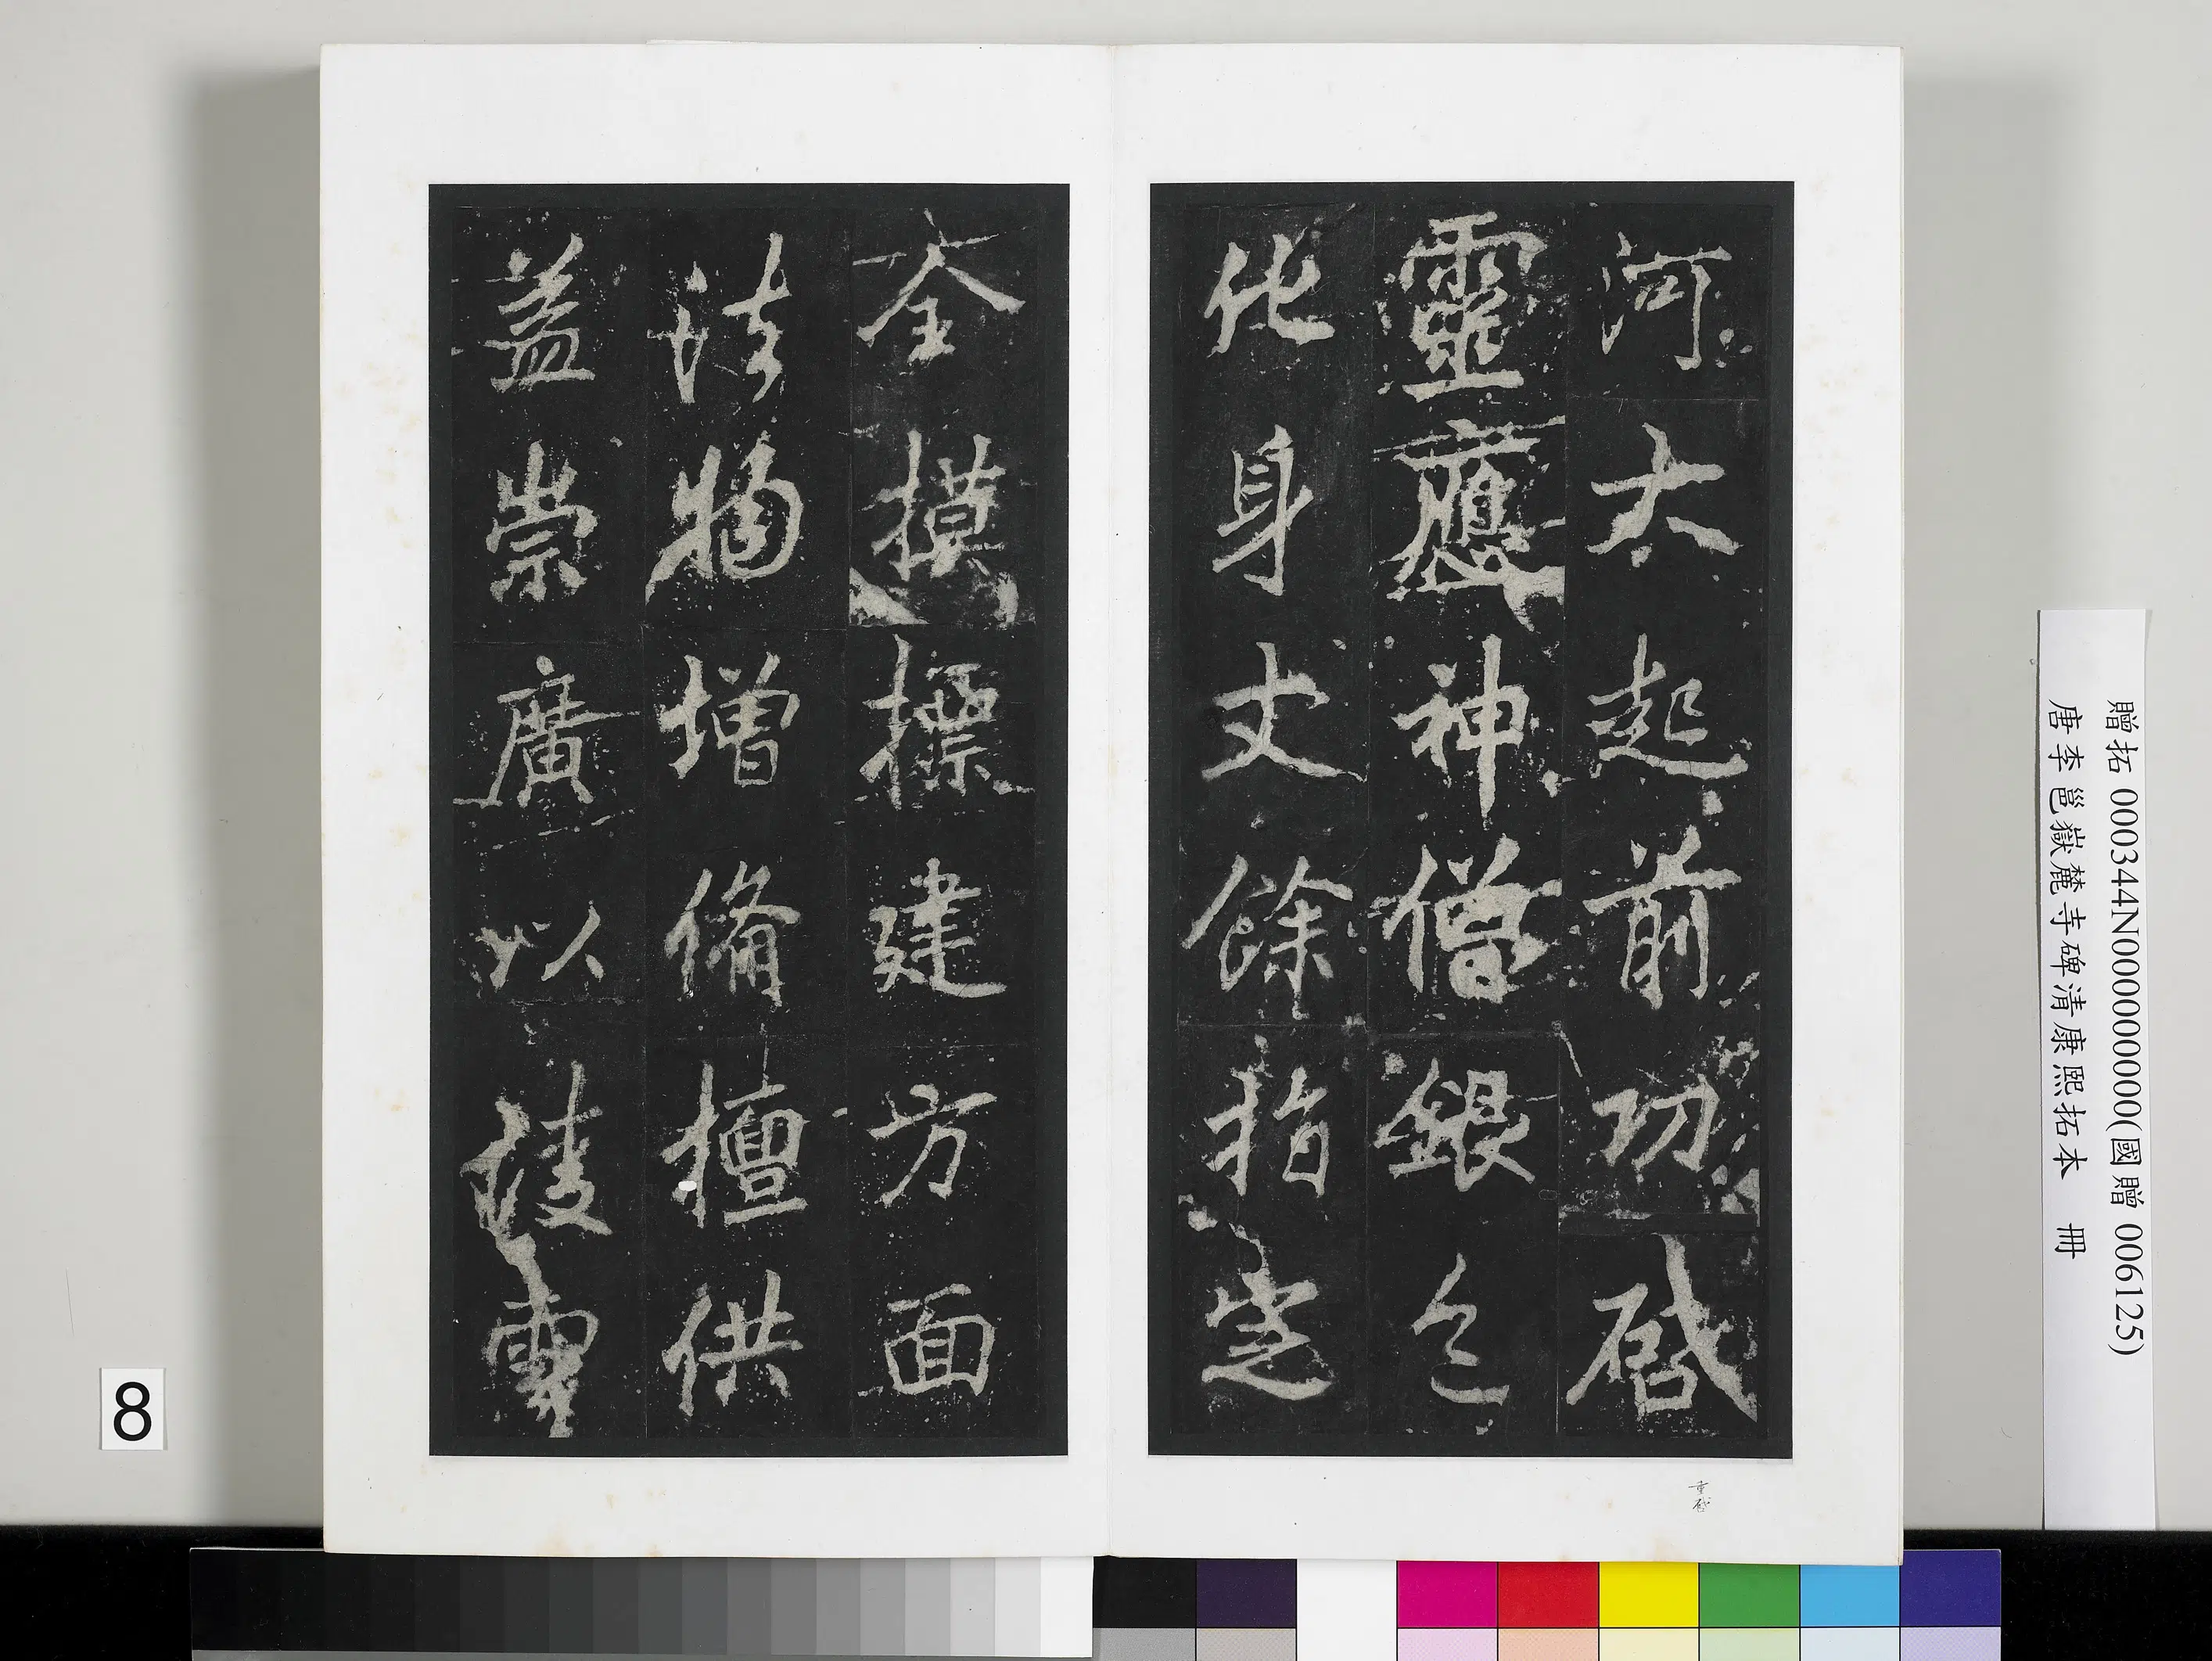 河太起前功啟
靈應神僧銀色
化身丈餘指定
全模標建方面
法物增備檀供
益崇廣以陵雲
重啟
贈拓 000344N000000000(國贈 006125)
唐李邕嶽麓寺碑清康熙拓本 冊
8